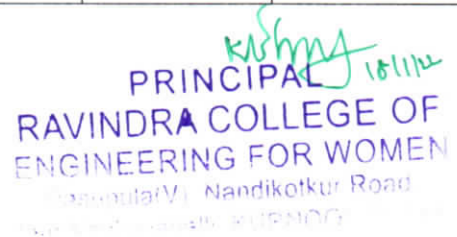 18/1/22
PRINCIPAL
RAVINDRA COLLEGE OF
ENGINEERING FOR WOMEN
Nandikotkur Road